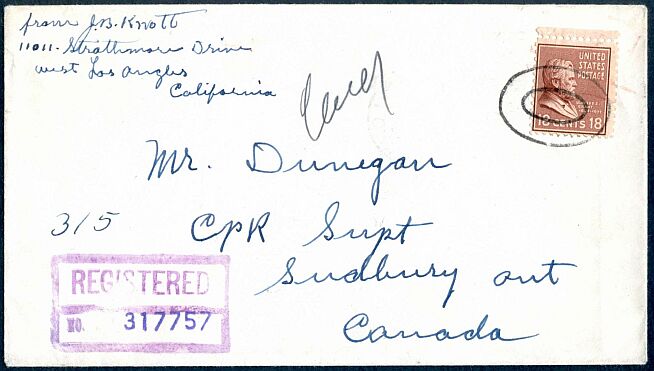 from J.B. Knott
11011 - Strathmore Drive
west Los Angles
California
UNITED
STATES
POSTAGE
18 CENTS 18
Mr. Dunegan
315
CPR Supt
Sudbury ont
Canada
REGISTERED
NO. 317757